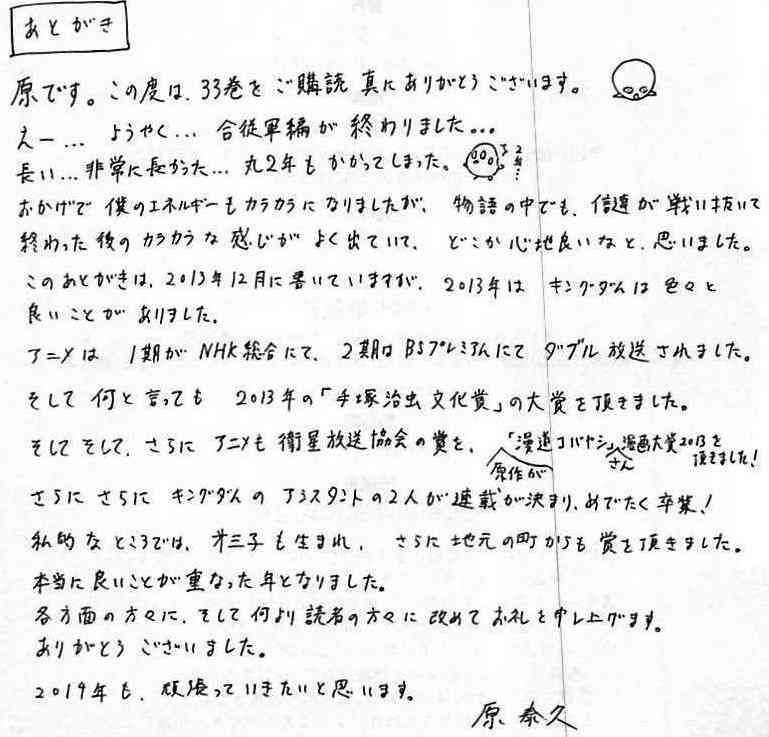 あとがき
原です。この度は、33巻をご購読 真にありがとうございます。
えー… ようやく… 合従軍編が 終わりました…
長い… 非常に長かった… 丸2年も かかってしまった。 2年…
おかげで 僕のエネルギーもカラカラに なりましたが、 物語の中でも、信達が 戦い抜いて
終わった 後の カラカラな 感じが よく出ていて、 どこか心地良いなと、思いました。
このあとがきは、2013年12月に書いていますが、 2013年は キングダムは 色々と
良いことが ありました。
アニメは 1期が NHK総合にて、 2期は BSプレミアムにて ダブル 放送されました。
そして 何と言っても 2013年の「手塚治虫 文化賞」の大賞を頂きました。
そしてそして、さらに アニメも 衛星放送協会の賞を、 原作が「漫道コバヤシ」さん漫画大賞2013を頂きました!
さらに さらに キングダムの アシスタントの2人が連載が決まり、めでたく 卒業!
私的な ところでは、 才三子も生まれ、 さらに 地元の町からも 賞を頂きました。
本当に 良いことが 重なった 年となりました。
各方面の方々に、そして何より 読者の方々に 改めて お礼を申し上げます。
ありがとう ございました。
2014年も、頑張っていきたいと思います。
原 泰久